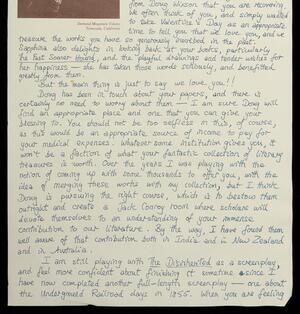 Sentinel Mountain Colony
Temecula, California
from Doug Wixson that you are recovering.
We often think of you, and simply wanted
to take Valentine's Day as an appropriate
time to tell you that we love you, and we
treasure the works you have so generously enriched in the past.
Sapphira also delights in looking back at your books, particularly
the Fast Sooner Hound, and the playful drawings and tender wishes for
her happiness — she has taken those words seriously, and benefited
greatly from them.
But the main thing is just to say we love you!!
Doug has been in touch about your papers, and there is
certainly no need to worry about them — I am sure Doug will
find an appropriate place and one that you can give your
blessing to. You should not be too selfless in this, of course,
as this would be an appropriate source of income to pay for
your medical expenses. Whatever some institution gives you, it
won't be a fraction of what your fantastic collection of literary
treasures is worth. Over the years I was playing with the
notion of coming up with some thousands to offer you, with the
idea of merging these works with my collection, but I think
Doug is pursuing the right course, which is to bestow them
outright and create a Jack Conroy room where scholars will
devote themselves to an understanding of your immense
contribution to our literature. By the way, I have found them
well aware of that contribution both in India and in New Zealand
and in Australia.
I am still playing with The Disinherited as a screenplay,
and feel more confident about finishing it sometime since I
have now completed another full-length screenplay — one about
the Underground Railroad days in 1855. When you are feeling